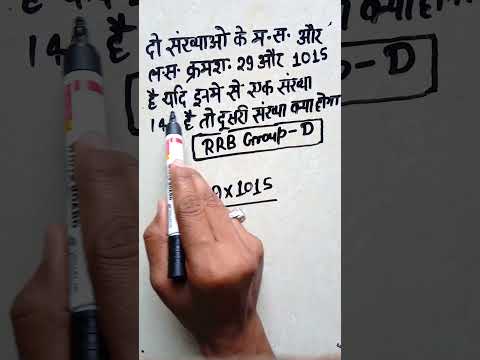 दो संख्याओ के म॰स॰ और
ल॰स॰ क्रमश. 29 और 1015
है यदि इनमे से एक संख्या
है तो दूसरी संख्या क्या होगा
RRB Group-D
x 1015